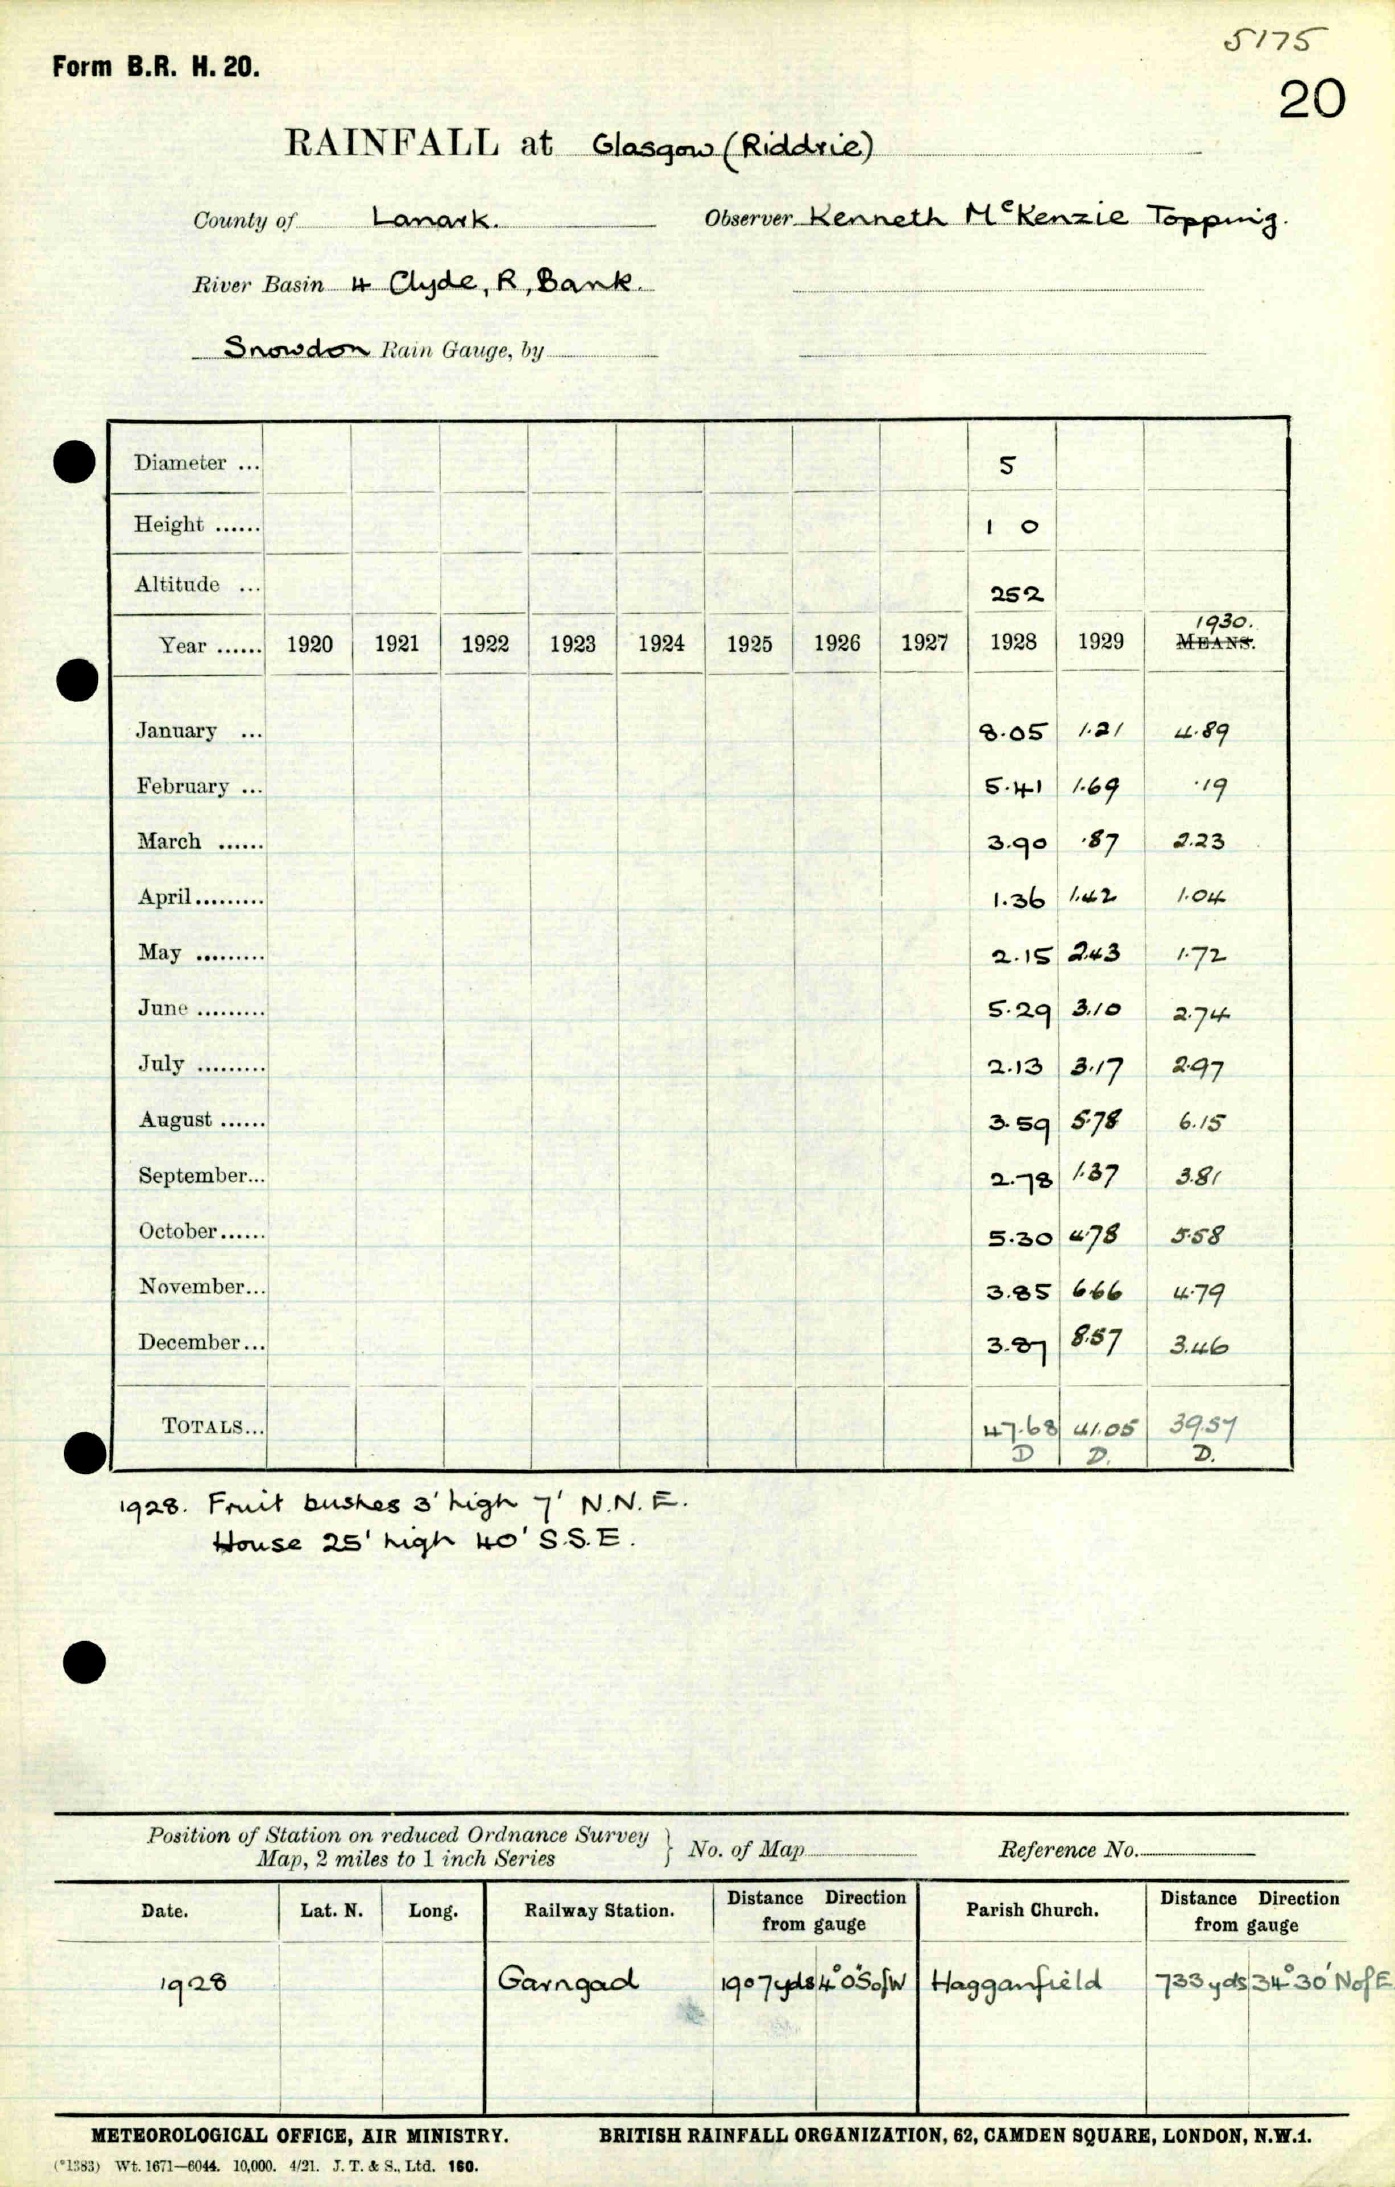 5175
Form B.R. H. 20.
20
RAINFALL at Glasgow (Riddrie)
County of Lanark. Observer Kenneth McKenzie Topping.
River Basin 4 Clyde, R, Bank.
Snowdon Rain Gauge, by
Diameter ... 5
Height ...... 1 0
Altitude ... 252
1930.
Year ...... 1920 1921 1922 1923 1924 1925 1926 1927 1928 1929 MEANS.
January ... 8.05 1.21 4.89
February ... 5.41 1.69 .19
March ...... 3.90 .87 2.23
April......... 1.36 1.42 1.04
May ......... 2.15 2.43 1.72
June ......... 5.29 3.10 2.74
July ......... 2.13 3.17 2.97
August ...... 3.59 5.78 6.15
September... 2.78 1.37 3.81
October...... 5.30 4.78 5.58
November... 3.85 6.66 4.79
December... 3.87 8.57 3.46
TOTALS... 47.68 41.05 39.57
D D. D.
1928. Fruit bushes 3' high 7' N.N.E.
House 25' high 40' S.S.E.
Position of Station on reduced Ordnance Survey
Map, 2 miles to 1 inch Series } No. of Map Reference No.
Date. Lat. N. Long. Railway Station. Distance Direction from gauge Parish Church. Distance Direction from gauge
1928 Garngad 1907yds 4°0'SofW Hagganfield 733yds 34°30'NofE
METEOROLOGICAL OFFICE, AIR MINISTRY. BRITISH RAINFALL ORGANIZATION, 62, CAMDEN SQUARE, LONDON, N.W.1.
(*1383) Wt. 1671—6044. 10,000. 4/21. J. T. & S., Ltd. 160.